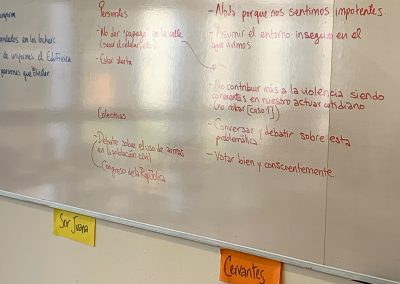 Personales
- No dar "papaya" en la calle
(sacar el celular, etc)
- Estar alerta
Colectivas
- Debate sobre el uso de armas
en la población civil
- Congreso de la República
- Nada porque nos sentimos impotentes.
- Asumir el entorno inseguro en el
que vivimos.
- No contribuir más a la violencia siendo
coherentes en nuestro actuar cotidiano
(no robar [caso 1])
- Conversar y debatir sobre esta
problemática.
- Votar bien y conscientemente
Sor Juana
Cervantes